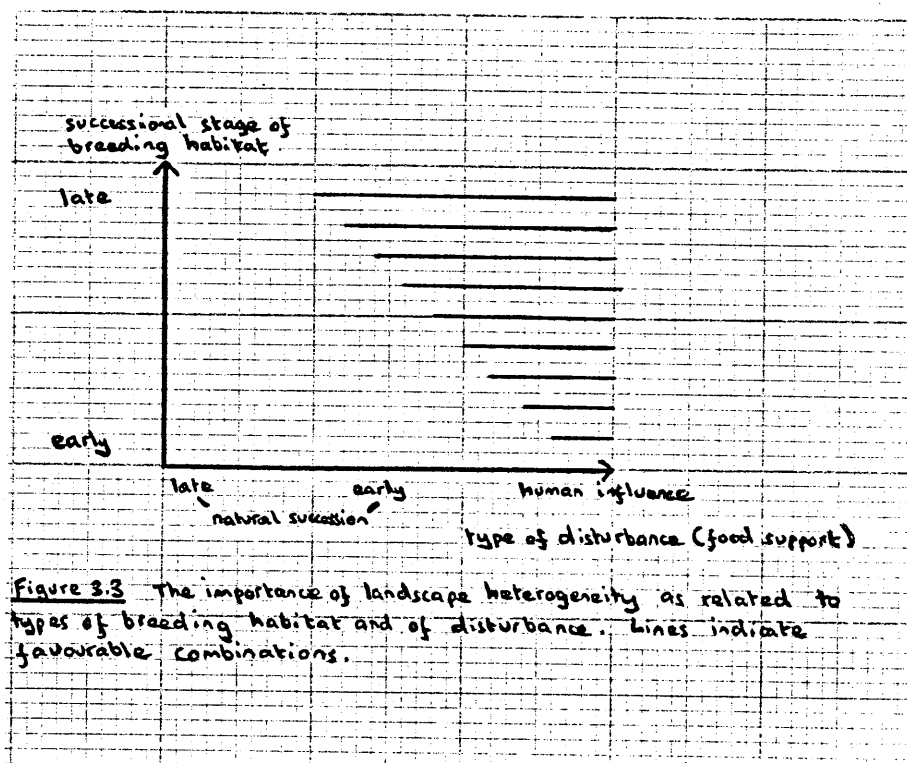 successional stage of
breeding habitat.
late
early
late early human influence
natural succession
type of disturbance (food support)
Figure 3.3 The importance of landscape heterogeneity as related to
types of breeding habitat and of disturbance. Lines indicate
favourable combinations.